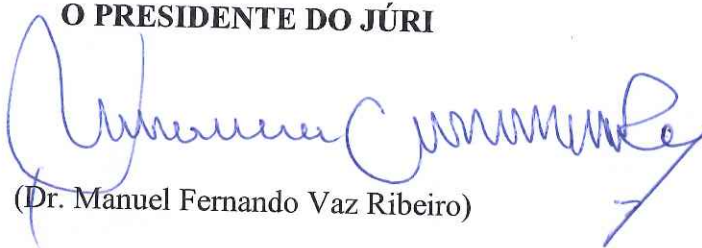 O PRESIDENTE DO JÚRI
(Dr. Manuel Fernando Vaz Ribeiro)